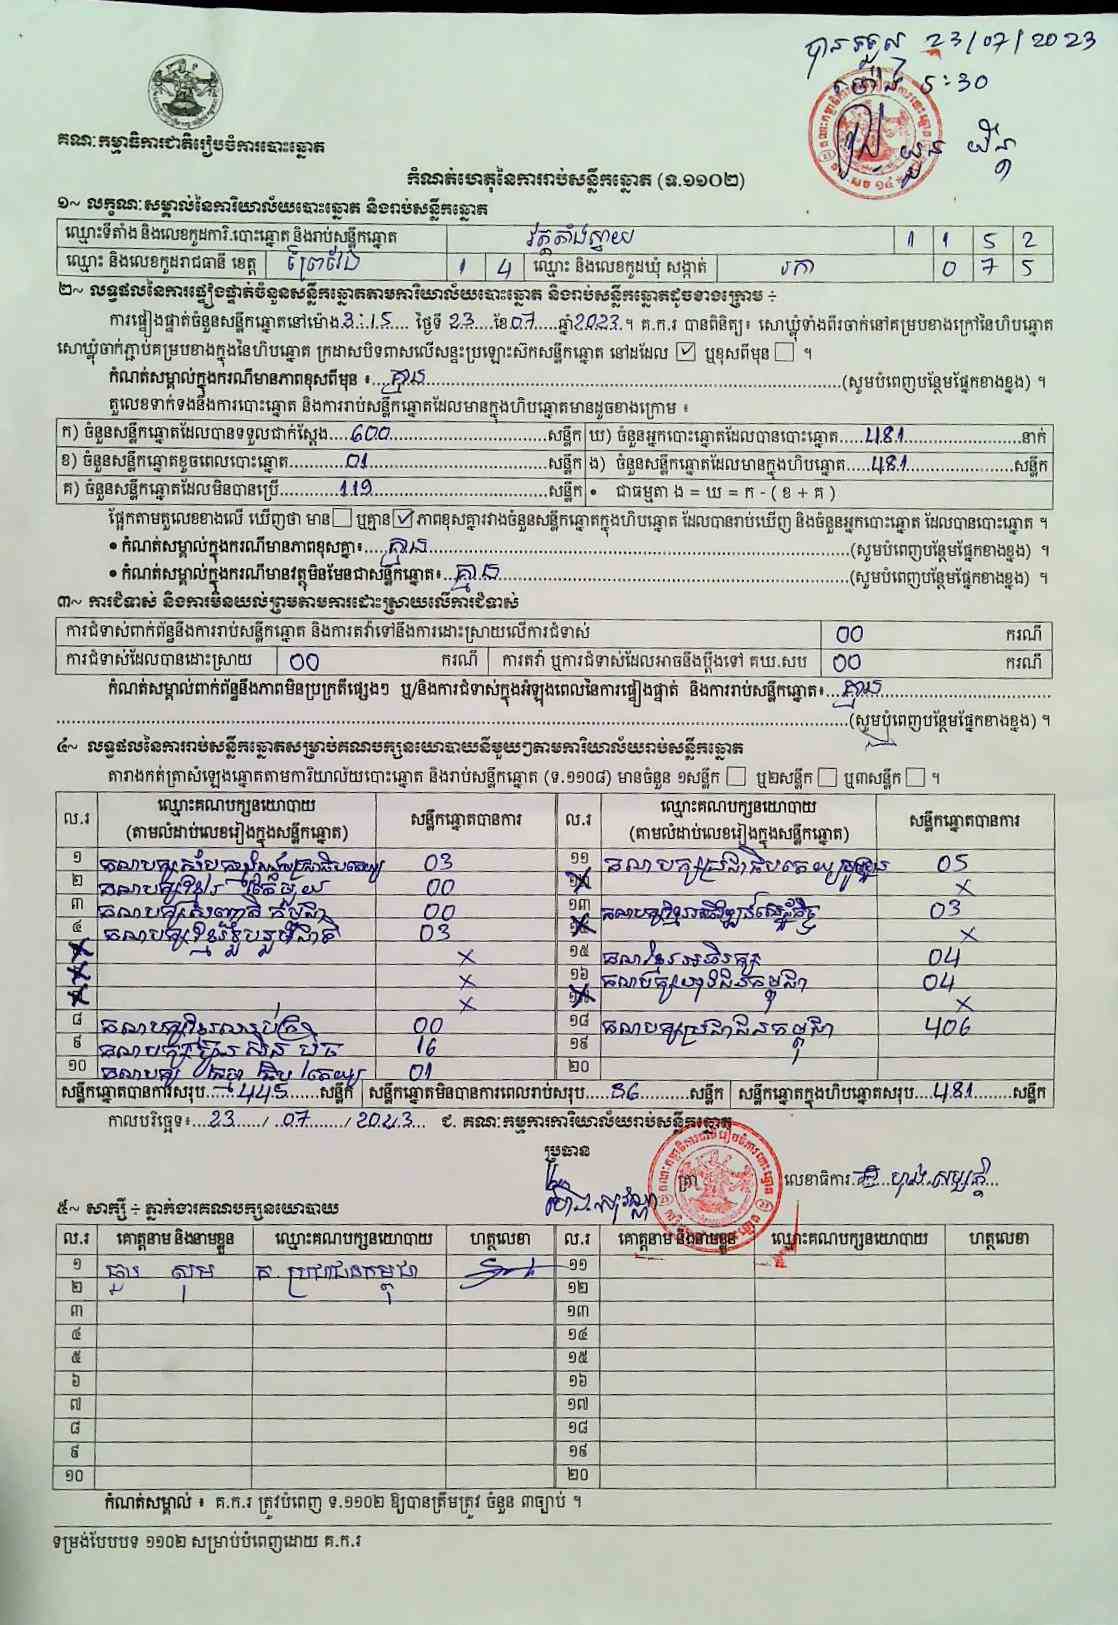 បានទទួល 23/07/2023
ម៉ោង 5:30
គណៈកម្មាធិការជាតិរៀបចំការបោះឆ្នោត
កំណត់ហេតុនៃការរាប់សន្លឹកឆ្នោត (ទ.១១០២)
១~ លក្ខណៈសម្គាល់នៃការិយាល័យបោះឆ្នោត និងរាប់សន្លឹកឆ្នោត
ឈ្មោះទីតាំង និងលេខកូដការិ.បោះឆ្នោត និងរាប់សន្លឹកឆ្នោត វត្តតាំងស្វាយ 1 1 5 2
ឈ្មោះ និងលេខកូដរាជធានី ខេត្ត ព្រៃវែង 1 4 ឈ្មោះ និងលេខកូដឃុំ សង្កាត់ រកា 0 7 5
២~ លទ្ធផលនៃការផ្ទៀងផ្ទាត់ចំនួនសន្លឹកឆ្នោតតាមការិយាល័យបោះឆ្នោត និងរាប់សន្លឹកឆ្នោតដូចខាងក្រោម ÷
ការផ្ទៀងផ្ទាត់ចំនួនសន្លឹកឆ្នោតនៅម៉ោង 3:15 ថ្ងៃទី 23 ខែ 07 ឆ្នាំ 2023 ។ គ.ក.រ បានពិនិត្យ៖ សោឃ្លុំទាំងពីរចាក់នៅគម្របខាងក្រៅនៃហិបឆ្នោត
សោឃ្លុំចាក់ភ្ជាប់គម្របខាងក្នុងនៃហិបឆ្នោត ក្រដាសបិទពាសលើសន្ទះប្រឡោះស៊កសន្លឹកឆ្នោត នៅដដែល ☑ ឬខុសពីមុន ☐ ។
កំណត់សម្គាល់ក្នុងករណីមានភាពខុសពីមុន ៖ គ្មាន (សូមបំពេញបន្ថែមផ្នែកខាងខ្នង) ។
តួលេខទាក់ទងនឹងការបោះឆ្នោត និងការរាប់សន្លឹកឆ្នោតដែលមានក្នុងហិបឆ្នោតមានដូចខាងក្រោម ៖
ក) ចំនួនសន្លឹកឆ្នោតដែលបានទទួលជាក់ស្តែង 600 សន្លឹក ឃ) ចំនួនអ្នកបោះឆ្នោតដែលបានបោះឆ្នោត 481 នាក់
ខ) ចំនួនសន្លឹកឆ្នោតខូចពេលបោះឆ្នោត 01 សន្លឹក ង) ចំនួនសន្លឹកឆ្នោតដែលមានក្នុងហិបឆ្នោត 481 សន្លឹក
គ) ចំនួនសន្លឹកឆ្នោតដែលមិនបានប្រើ 119 សន្លឹក • ជាធម្មតា ង = ឃ = ក - ( ខ + គ )
ផ្អែកតាមតួលេខខាងលើ ឃើញថា មាន ☐ ឬគ្មាន ☑ ភាពខុសគ្នារវាងចំនួនសន្លឹកឆ្នោតក្នុងហិបឆ្នោត ដែលបានរាប់ឃើញ និងចំនួនអ្នកបោះឆ្នោត ដែលបានបោះឆ្នោត ។
• កំណត់សម្គាល់ក្នុងករណីមានភាពខុសគ្នា៖ គ្មាន (សូមបំពេញបន្ថែមផ្នែកខាងខ្នង) ។
• កំណត់សម្គាល់ក្នុងករណីមានវត្ថុមិនមែនជាសន្លឹកឆ្នោត៖ គ្មាន (សូមបំពេញបន្ថែមផ្នែកខាងខ្នង) ។
៣~ ការជំទាស់ និងការមិនយល់ព្រមតាមការដោះស្រាយលើការជំទាស់
ការជំទាស់ពាក់ព័ន្ធនឹងការរាប់សន្លឹកឆ្នោត និងការតវ៉ាទៅនឹងការដោះស្រាយលើការជំទាស់ 00 ករណី
ការជំទាស់ដែលបានដោះស្រាយ 00 ករណី ការតវ៉ា ឬការជំទាស់ដែលអាចនឹងប្តឹងទៅ គឃ.សប 00 ករណី
កំណត់សម្គាល់ពាក់ព័ន្ធនឹងភាពមិនប្រក្រតីផ្សេងៗ ឬ/និងការជំទាស់ក្នុងអំឡុងពេលនៃការផ្ទៀងផ្ទាត់ និងការរាប់សន្លឹកឆ្នោត៖ គ្មាន
(សូមបំពេញបន្ថែមផ្នែកខាងខ្នង) ។
៤~ លទ្ធផលនៃការរាប់សន្លឹកឆ្នោតសម្រាប់គណបក្សនយោបាយនីមួយៗតាមការិយាល័យរាប់សន្លឹកឆ្នោត
តារាងកត់ត្រាសំឡេងឆ្នោតតាមការិយាល័យបោះឆ្នោត និងរាប់សន្លឹកឆ្នោត (ទ.១១០៨) មានចំនួន ១សន្លឹក ☐ ឬ២សន្លឹក ☐ ឬ៣សន្លឹក ☐ ។
ល.រ ឈ្មោះគណបក្សនយោបាយ (តាមលំដាប់លេខរៀងក្នុងសន្លឹកឆ្នោត) សន្លឹកឆ្នោតបានការ ល.រ ឈ្មោះគណបក្សនយោបាយ (តាមលំដាប់លេខរៀងក្នុងសន្លឹកឆ្នោត) សន្លឹកឆ្នោតបានការ
១ 03 ១១ 05
២ 00 X
៣ 00 ១៣ 03
៤ គណបក្សខ្មែររួបរួមជាតិ 03 X
X ១៥ 04
X ១៦ 04
X X
៨ 00 ១៨ គណបក្សប្រជាជនកម្ពុជា 406
៩ 16 ១៩
១០ 01 ២០
សន្លឹកឆ្នោតបានការសរុប 445 សន្លឹក សន្លឹកឆ្នោតមិនបានការពេលរាប់សរុប 36 សន្លឹក សន្លឹកឆ្នោតក្នុងហិបឆ្នោតសរុប 481 សន្លឹក
កាលបរិច្ឆេទ៖ 23 / 07 / 2023 ជ. គណៈកម្មការការិយាល័យរាប់សន្លឹកឆ្នោត
ប្រធាន
ត្រា លេខាធិការ
៥~ សាក្សី ÷ ភ្នាក់ងារគណបក្សនយោបាយ
ល.រ គោត្តនាម និងនាមខ្លួន ឈ្មោះគណបក្សនយោបាយ ហត្ថលេខា ល.រ គោត្តនាម និងនាមខ្លួន ឈ្មោះគណបក្សនយោបាយ ហត្ថលេខា
១ គ. ប្រជាជនកម្ពុជា ១១
២ ១២
៣ ១៣
៤ ១៤
៥ ១៥
៦ ១៦
៧ ១៧
៨ ១៨
៩ ១៩
១០ ២០
កំណត់សម្គាល់ ៖ គ.ក.រ ត្រូវបំពេញ ទ.១១០២ ឱ្យបានត្រឹមត្រូវ ចំនួន ៣ច្បាប់ ។
ទម្រង់បែបបទ ១១០២ សម្រាប់បំពេញដោយ គ.ក.រ